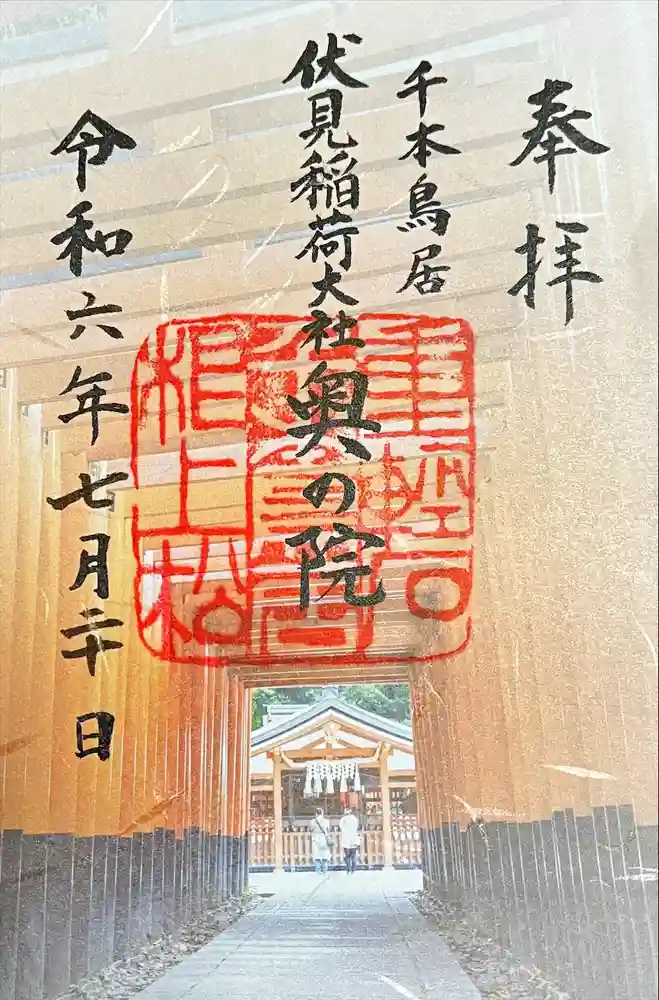 奉拝
千本鳥居
伏見稲荷大社奥の院
令和六年七月二十日